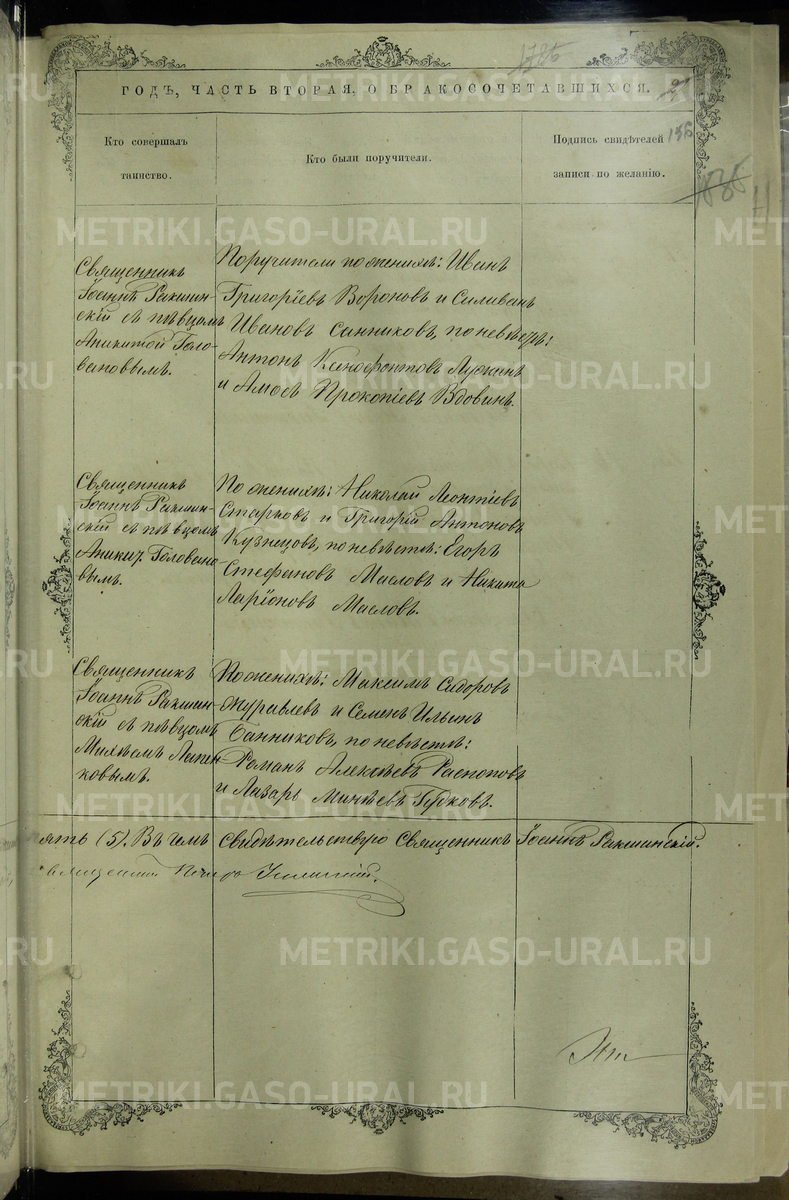 ГОДЪ, ЧАСТЬ ВТОРАЯ. О БРАКОСОЧЕТАВШИХСЯ.
156
Кто совершалъ
таинство.
Кто были поручители.
Подпись свидѣтелей
записи по желанію.
Священникъ
Іоаннъ Ракшин-
скій съ пѣвцомъ
Аникитой Голо-
вановымъ.
Поручители по женихѣ: Иванъ
Григоріевъ Вороновъ и Силиванъ
Ивановъ Санниковъ, по невѣстѣ:
Антонъ Ксенофонтовъ Лузинъ
и Амосъ Прокопіевъ Вдовинъ.
Священникъ
Іоаннъ Ракшин-
скій съ пѣвцомъ
Аникит. Головано-
вымъ.
По женихѣ: Николай Леонтіевъ
Старковъ и Григорій Антоновъ
Кузнецовъ, по невѣстѣ: Егоръ
Стефановъ Масловъ и Никита
Ларіоновъ Масловъ.
Священникъ
Іоаннъ Ракшин-
скій съ пѣвцомъ
Михѣемъ
ковымъ.
По женихѣ: Максимъ Сидоровъ
Журавлевъ и Семенъ Ильинъ
Банниковъ, по невѣстѣ:
Романъ Алексѣевъ Распоповъ
и Лазарь Минѣевъ
ять (5). Въ чемъ свидѣтельствую Священникъ Іоаннъ Ракшинскій.
METRIKI.GASO-URAL.RU